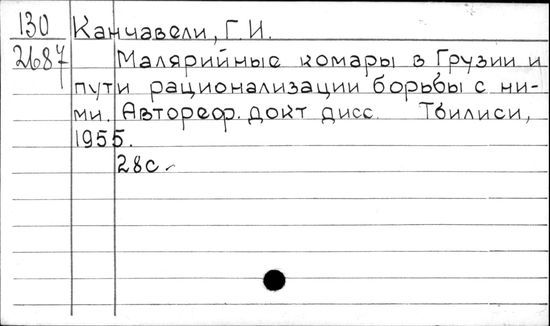 130 Канчавели, Г.И.
2687 Малярийные комары в Грузии и
пути рационализации борьбы с ни-
ми. Автореф. докт дисс. Тбилиси,
1955.
28с.